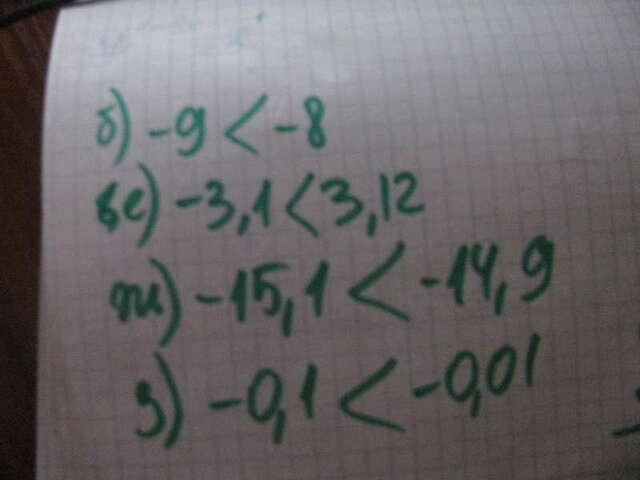 б) -9 < -8
е) -3,1 < 3,12
ж) -15,1 < -14,9
з) -0,1 < -0,01